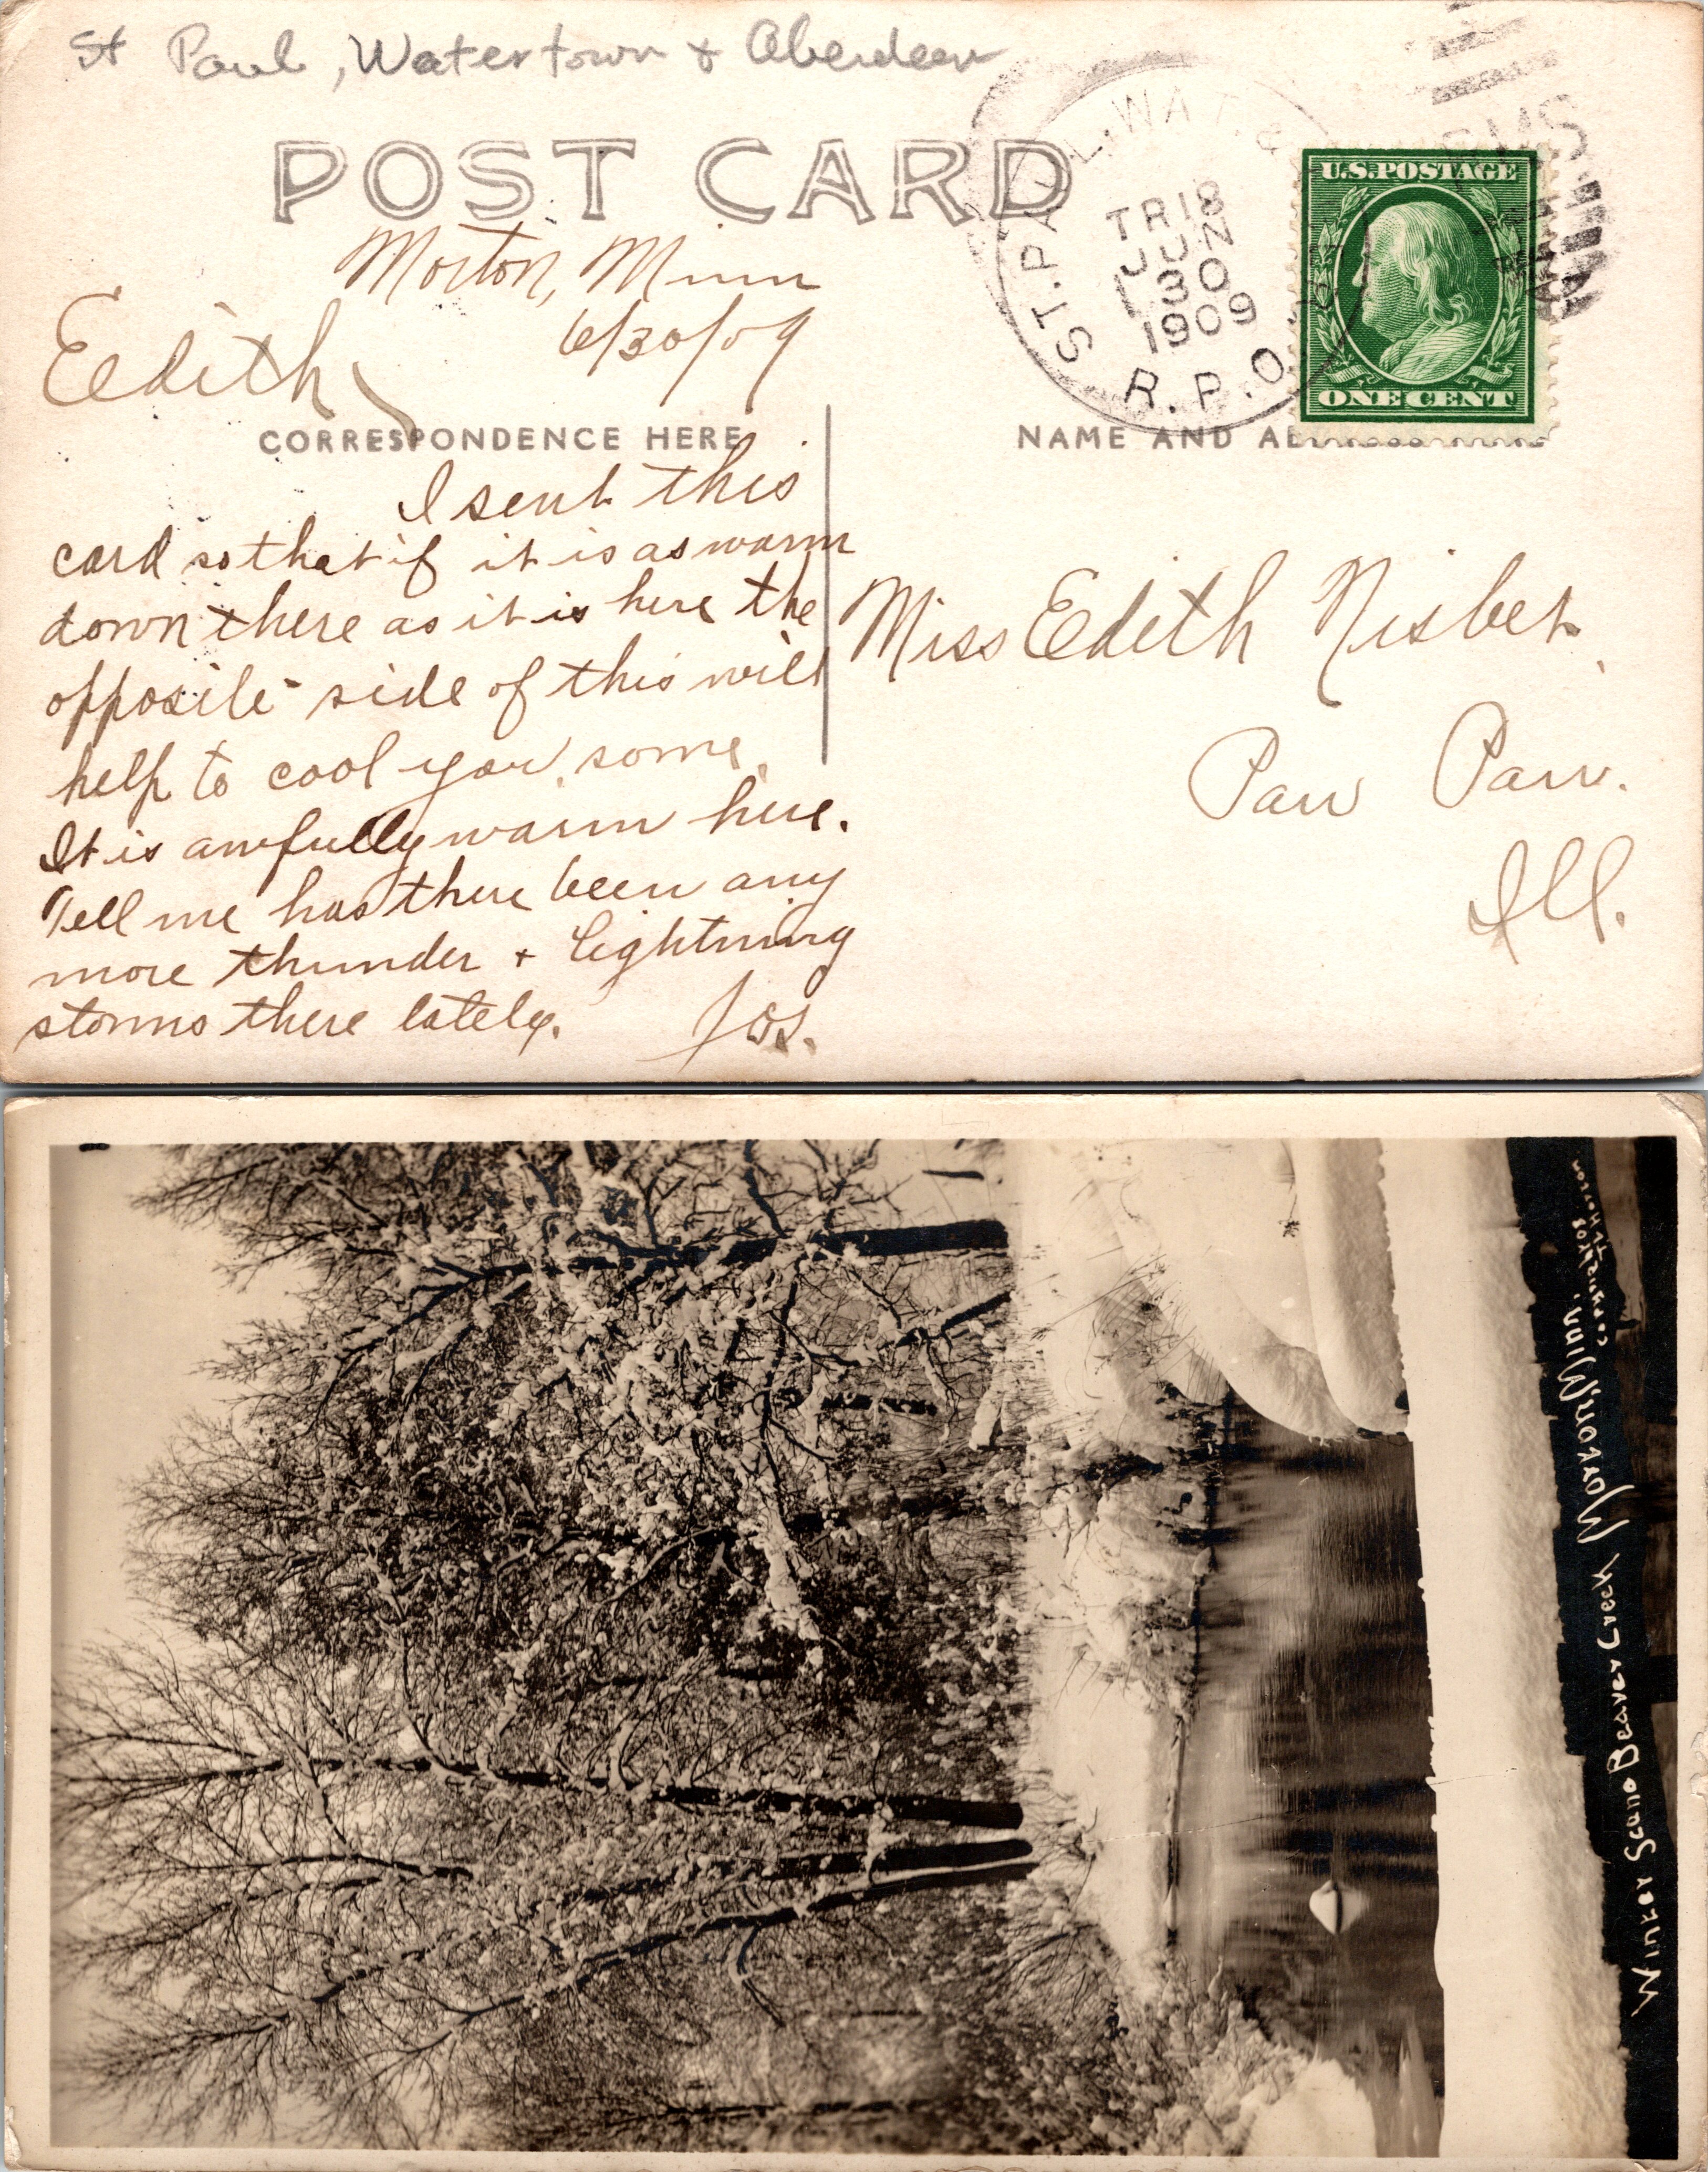 St Paul, Watertown & Aberdeen
POST CARD
ST. PAUL. WAT. &
TR 18
JUN
30
1909
R.P.O.
RMS
U.S. POSTAGE
ONE CENT
Morton, Minn
6/30/09
Edith,
CORRESPONDENCE HERE
NAME AND
I sent this
card so that if it is as warm
down there as it is here the
opposite side of this will
help to cool you some.
It is awfully warm here.
Tell me has there been any
more thunder + lightning
storms there lately.
Miss Edith Nisbet
Paw Paw.
Ill.
Winter Scene Beaver Creek